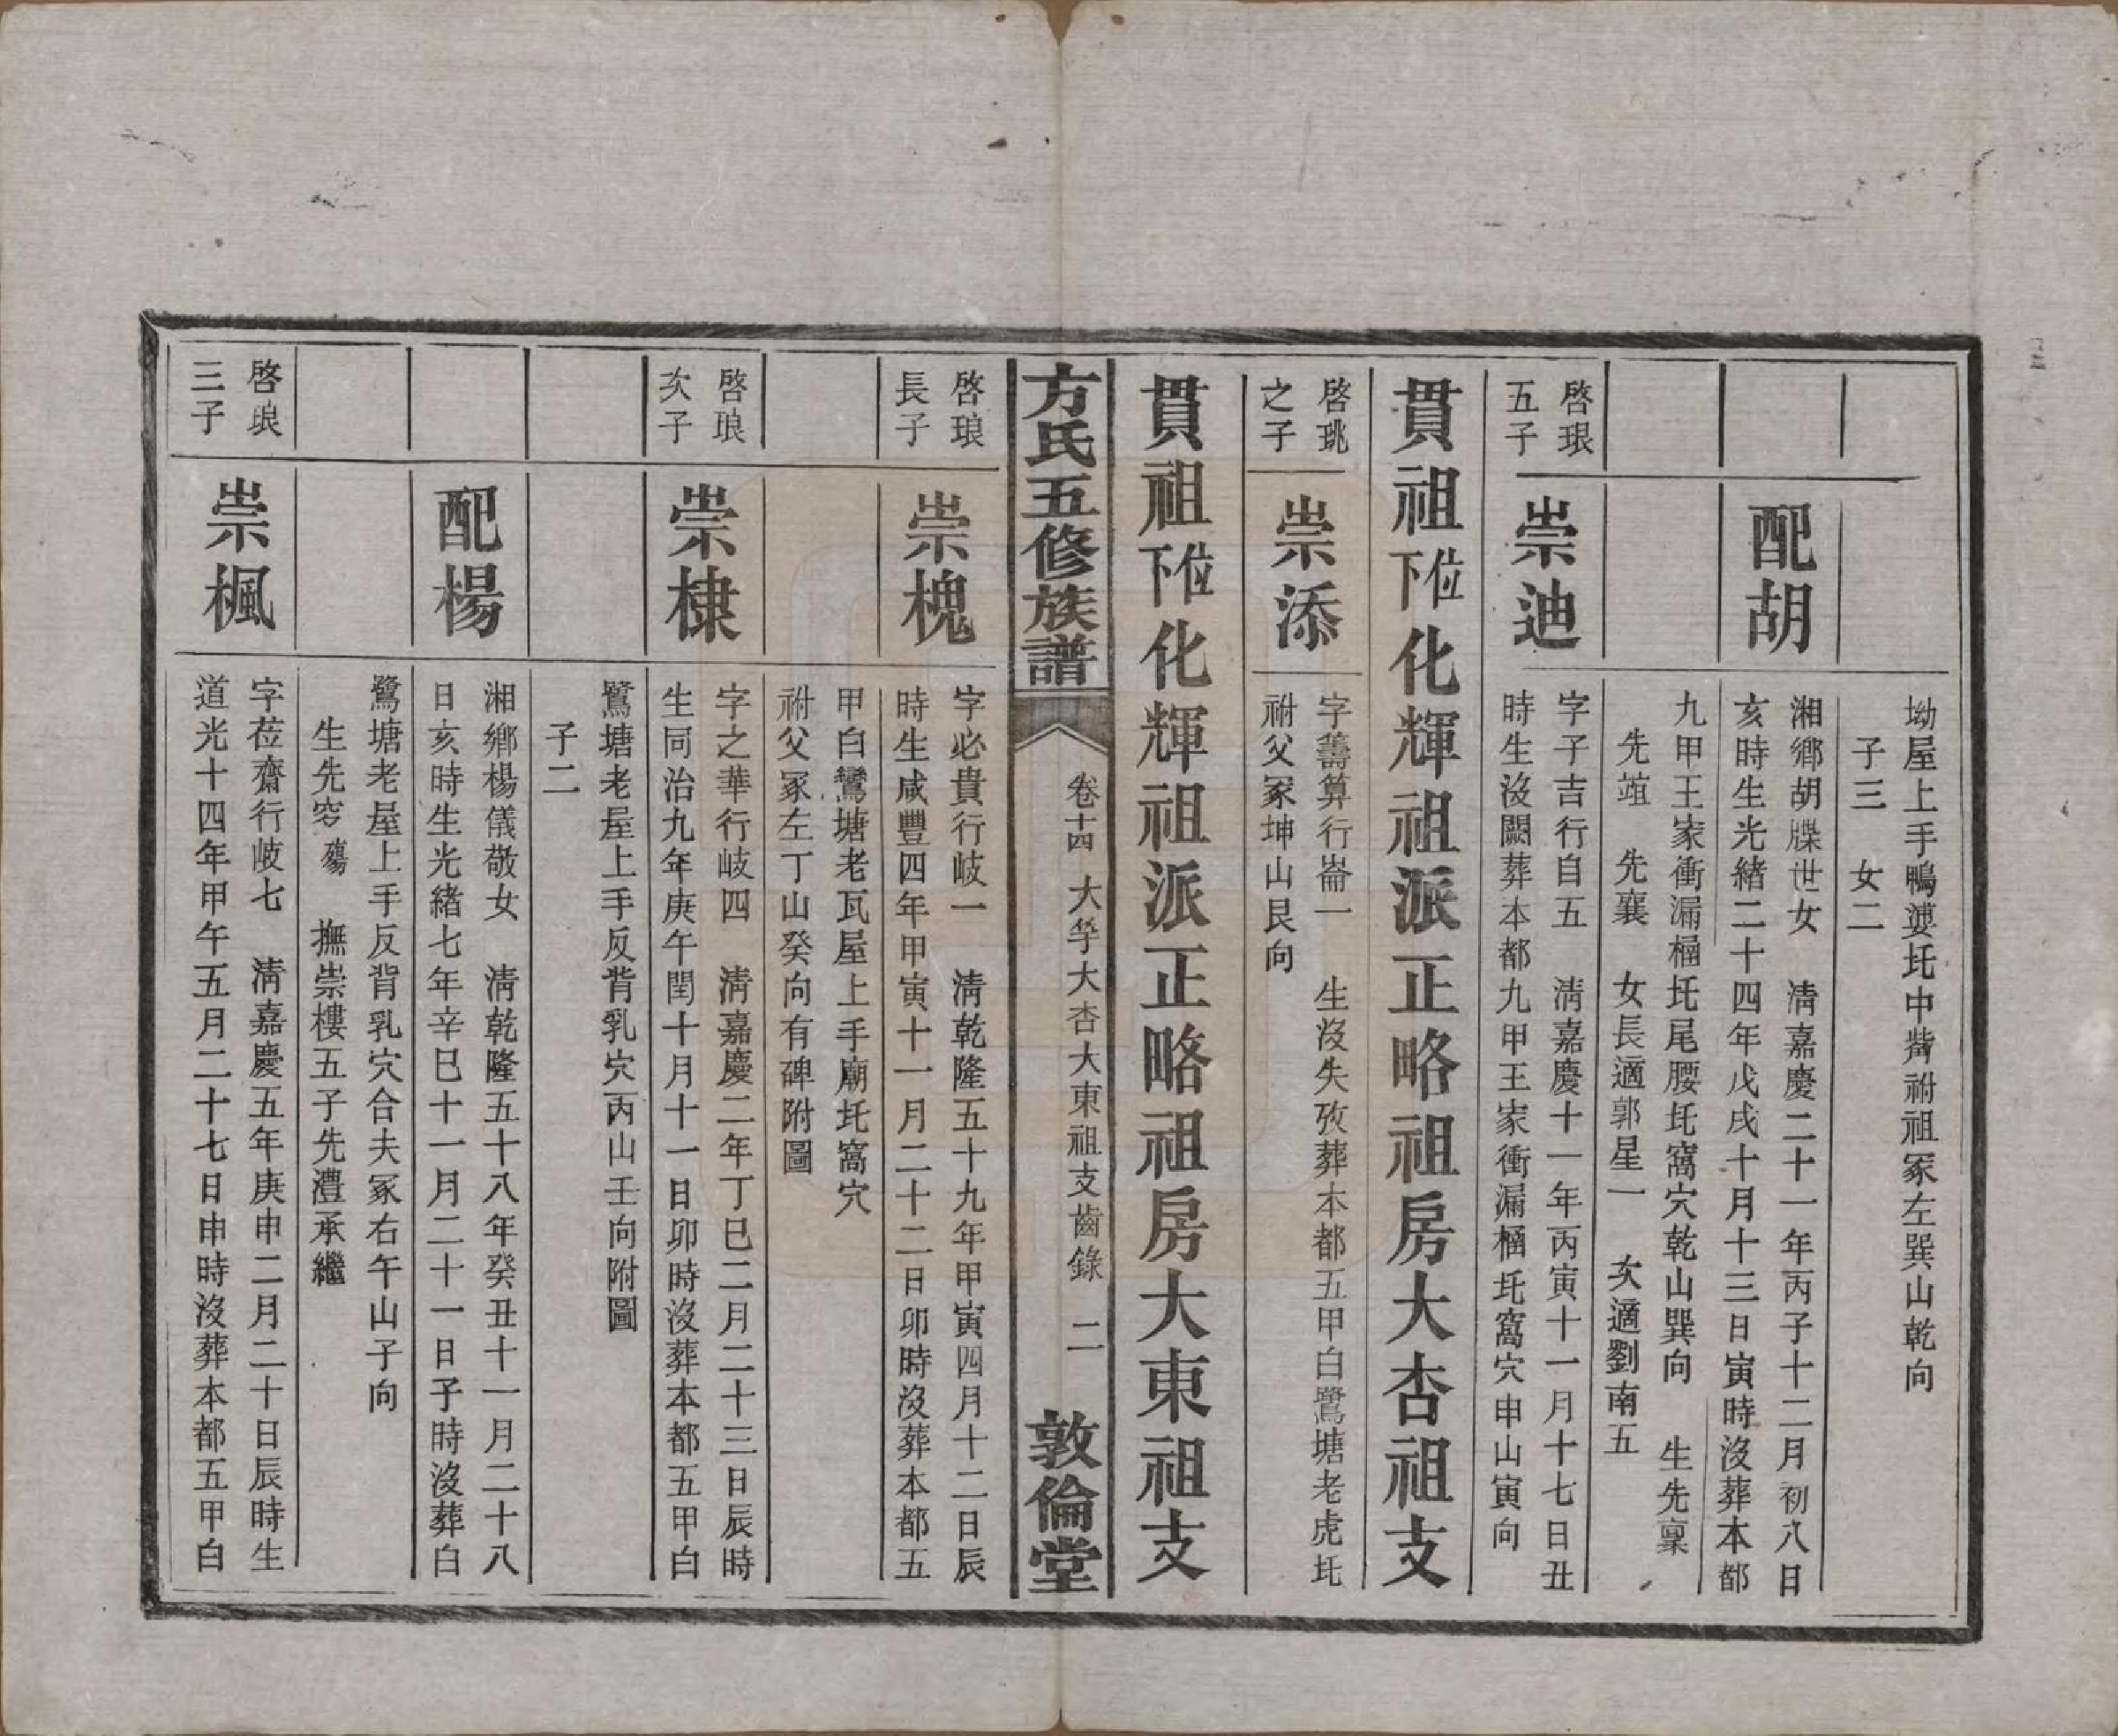 坳屋上手鴨婆圫中嘴祔祖冢左巽山乾向
子三　女二
配胡
湘鄉胡牒世女　清嘉慶二十一年丙子十二月初八日
亥時生光緒二十四年戊戌十月十三日寅時沒葬本都
九甲王家衝漏楅圫尾腰圫窩穴乾山巽向　生先稟
先竩　先襄　女長適郭星一　次適劉南五
啓琅
五子
崇迪
字子吉行自五　清嘉慶十一年丙寅十一月十七日丑
時生沒闕葬本都九甲王家衝漏楅圫窩穴申山寅向
貫祖位下化輝祖派正略祖房大杏祖支
啓珧
之子
崇添
字籌算行崙一　生沒失攷葬本都五甲白鷺塘老虎圫
祔父冢坤山艮向
貫祖位下化輝祖派正略祖房大東祖支
方氏五修族譜
卷十四　大孚大杏大東祖支齒錄　二
敦倫堂
啓琅
長子
崇槐
字必貴行岐一　清乾隆五十九年甲寅四月十二日辰
時生咸豐四年甲寅十一月二十二日卯時沒葬本都五
甲白鷺塘老瓦屋上手廟圫窩穴
祔父冢左丁山癸向有碑附圖
啓琅
次子
崇棣
字之華行岐四　清嘉慶二年丁巳二月二十三日辰時
生同治九年庚午閏十月十一日卯時沒葬本都五甲白
鷺塘老屋上手反背乳穴丙山壬向附圖
子二
配楊
湘鄉楊儀敬女　清乾隆五十八年癸丑十一月二十八
日亥時生光緒七年辛巳十一月二十一日子時沒葬白
鷺塘老屋上手反背乳穴合夫冢右午山子向
生先穸殤　撫崇樓五子先澧承繼
啓琅
三子
崇楓
字莅齋行岐七　清嘉慶五年庚申二月二十日辰時生
道光十四年甲午五月二十七日申時沒葬本都五甲白